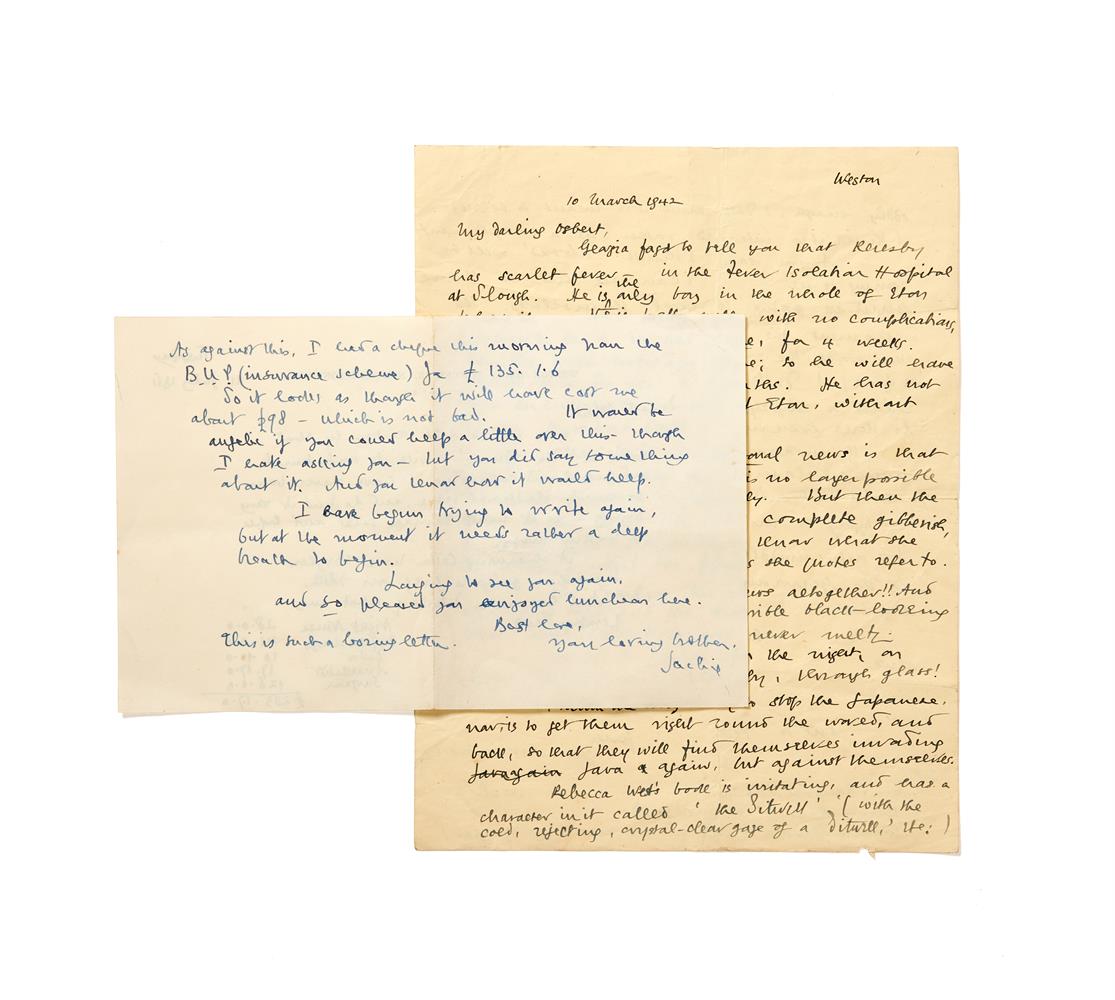 Weston
10 March 1942
My darling Osbert,
Georgia to tell you that Reresby
has scarlet fever – in the Fever Isolation Hospital
at Slough. He is the only boy in the whole of Eton
with no complications,
for 4 weeks.
so he will have
He has not
Eton, without
news is that
is no longer possible
But then the
complete gibberish,
know what she
she quotes refer to.
altogether!! And
black-looking
never melt.
the night, on
through glass!
to stop the Japanese.
now, is to get them right round the world, and
back, so that they will find themselves invading
Java again, but against themselves.
Rebecca West's book is irritating, and has a
character in it called 'the Sitwell' (with the
cold, rejecting, crystal-clear gaze of a Sitwell,' etc:)
As against this, I had a cheque this morning from the
B.U.P (insurance scheme) for £135. 1.6
So it looks as though it will have cost me
about £98 – which is not bad. It would be
angelic if you could help a little over this – though
I hate asking you – but you did say something
about it. And you know how it would help.
I have begun trying to write again,
but at the moment it needs rather a deep
breath to begin.
Longing to see you again.
and so pleased you enjoyed luncheon here.
Best love,
This is such a boring letter.
your loving brother,
Sachie